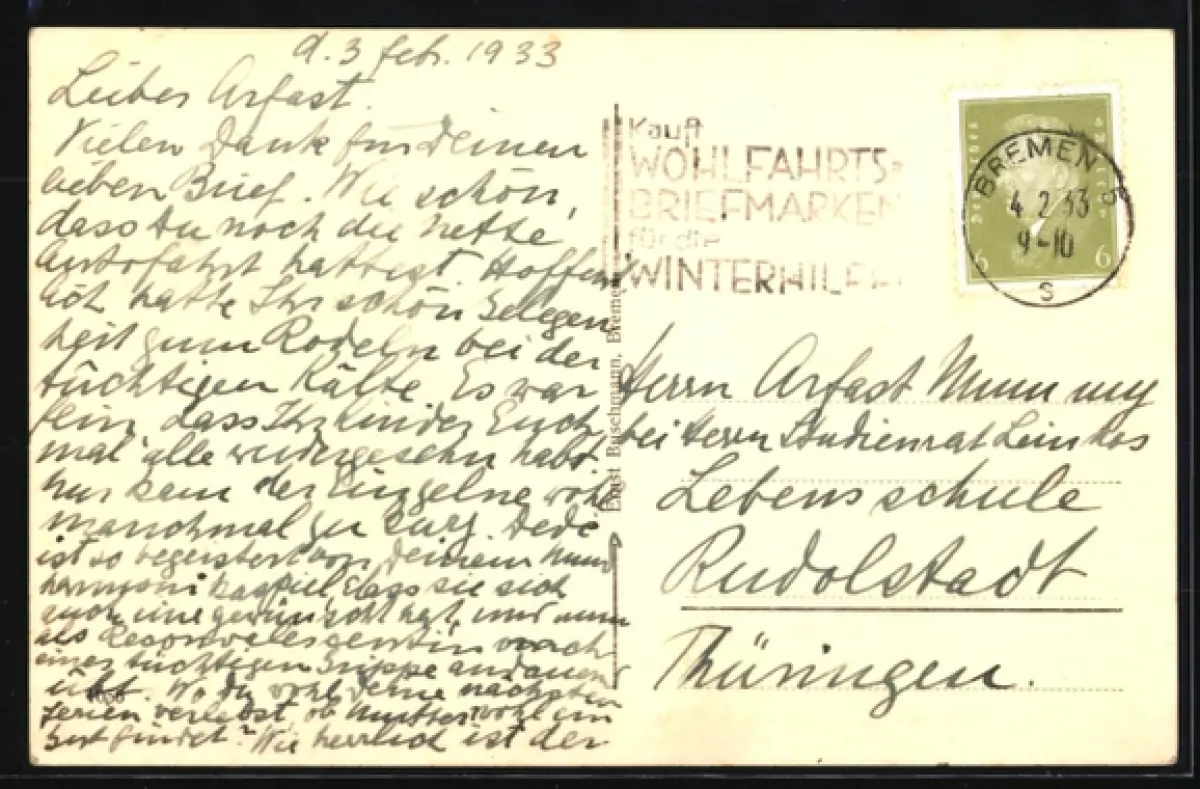 d. 3 Febr. 1933
Lieber Arfast.
Vielen Dank für Deinen
lieben Brief. Wie schön,
dass Du noch die nette
Autofahrt hattest. Hoffent
lich hatte Ihr schön Gelegen
heit zum Rodeln bei der
tüchtigen Kälte. Es war
fein, dass Ihr Kinder Euch
mal alle wiedergesehn habt.
Nur kam der Einzelne wohl
manchmal zu kurz. Dede
ist so begeistert von Deinem Mund
harmoni kaspiel, dass sie sich
auch eine gewünscht hat, und nun
als Reconvalescentin nach
einer tüchtigen Grippe andauernd
übt. Wo Du wohl Deine nächsten
Ferien verlebst, ob Mutter wohl ein
Gut findet? Wie herrlich ist der
Ernst Buschmann, Bremen
Kauft
WOHLFAHRTS-
BRIEFMARKEN
für die
WINTERHILFE
DEUTSCHES
6
6
BREMEN 5
4.2.33
9-10
S
Herrn Arfast
bei Herrn Studienrat
Lebensschule
Rudolstadt
Thüringen.